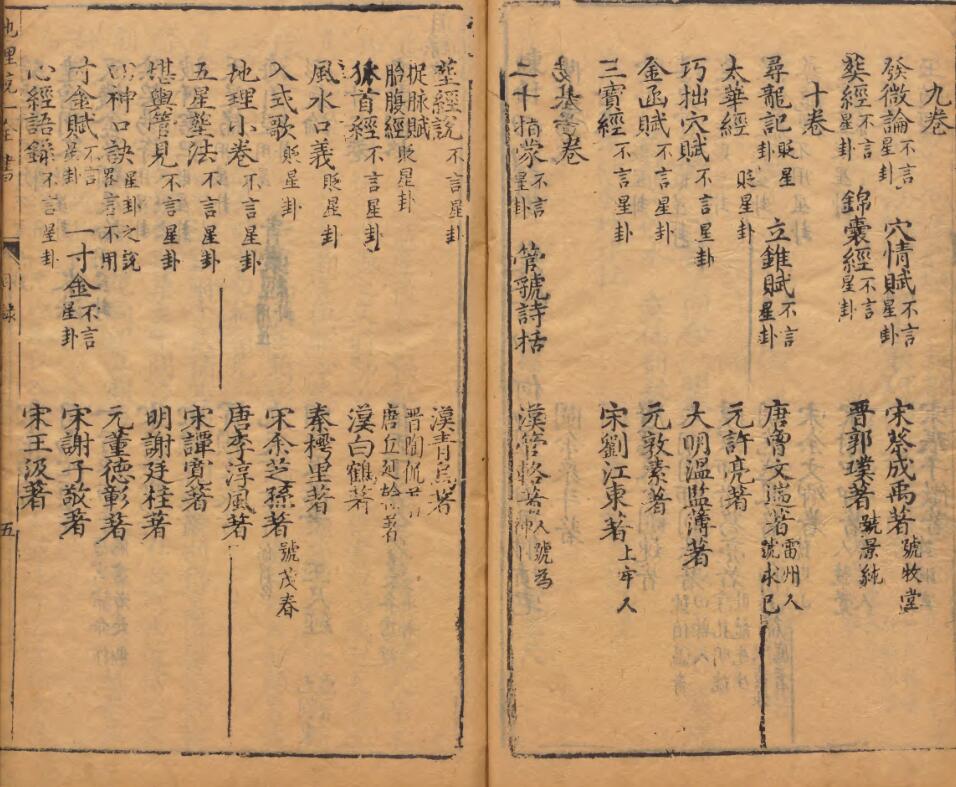 九卷
發微論不言星卦 穴情賦不言星卦 宋蔡成禹著號牧堂
葬經不言星卦 錦囊經不言星卦 晉郭璞著號景純
十卷
尋龍記貶星卦 立錐賦不言星卦 唐曾文遄著雷州人號求己
太華經貶星卦 元許亮著
巧拙穴賦不言星卦 大明溫監薄著
金函賦不言星卦 元敦素著
三寶經不言星卦 宋劉江東著上牢人
卷
二十指蒙不言星卦 管虢詩括 漢管輅著人號為神
葬經說不言星卦 漢青烏著
捉脉賦 晉陶侃
胎腹經貶星卦 唐丘延翰著
狐首經不言星卦 漢白鶴著
風水口義貶星卦 秦樗里著
入式歌貶星卦 宋余芝孫著號茂春
地理小卷不言星卦 唐李淳風著
五星塟法不言星卦 宋譚寬著
堪輿管見不言星卦 明謝廷桂著
神口訣星卦之說畧言不用 元董德彰著
寸金賦不言星卦 一寸金不言星卦 宋謝子敬著
心經語錄不言星卦 宋王汲著
地理統一全書 目錄 五